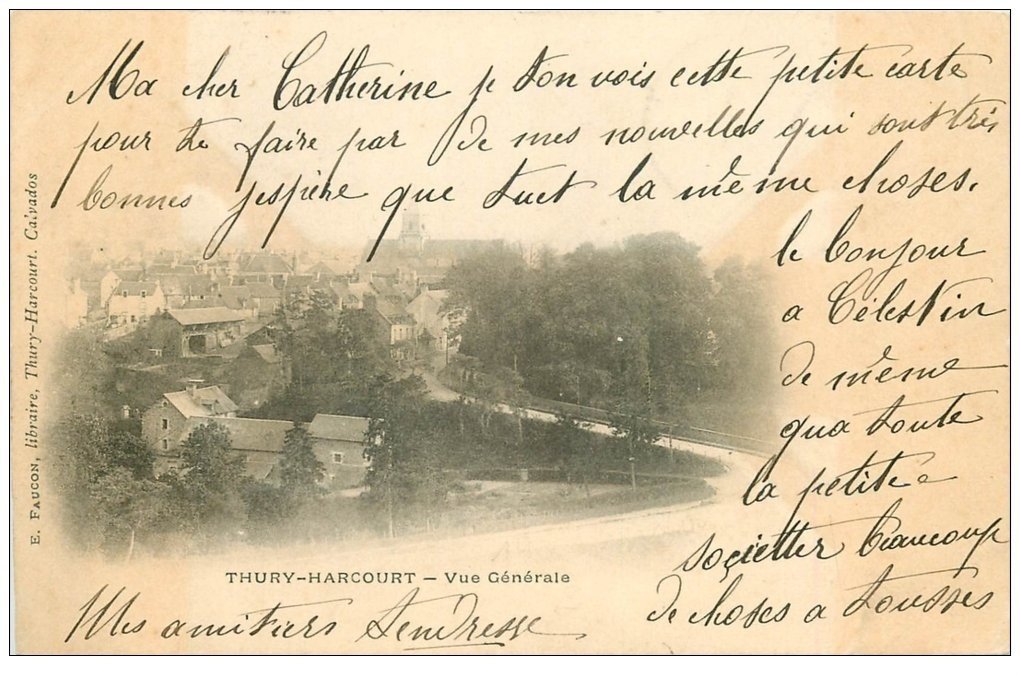 Ma cher Catherine je ton vois cette petite carte
pour te faire par de mes nouvelles qui sont très
bonnes jespère que tuet la même choses.
le bonjour
a Célestin
de même
qua toute
la petite
soçietter beaucoup
de choses a tousses
Mes amitiers Tendresse
THURY-HARCOURT – Vue Générale
E. FAUCON, libraire, Thury-Harcourt. Calvados